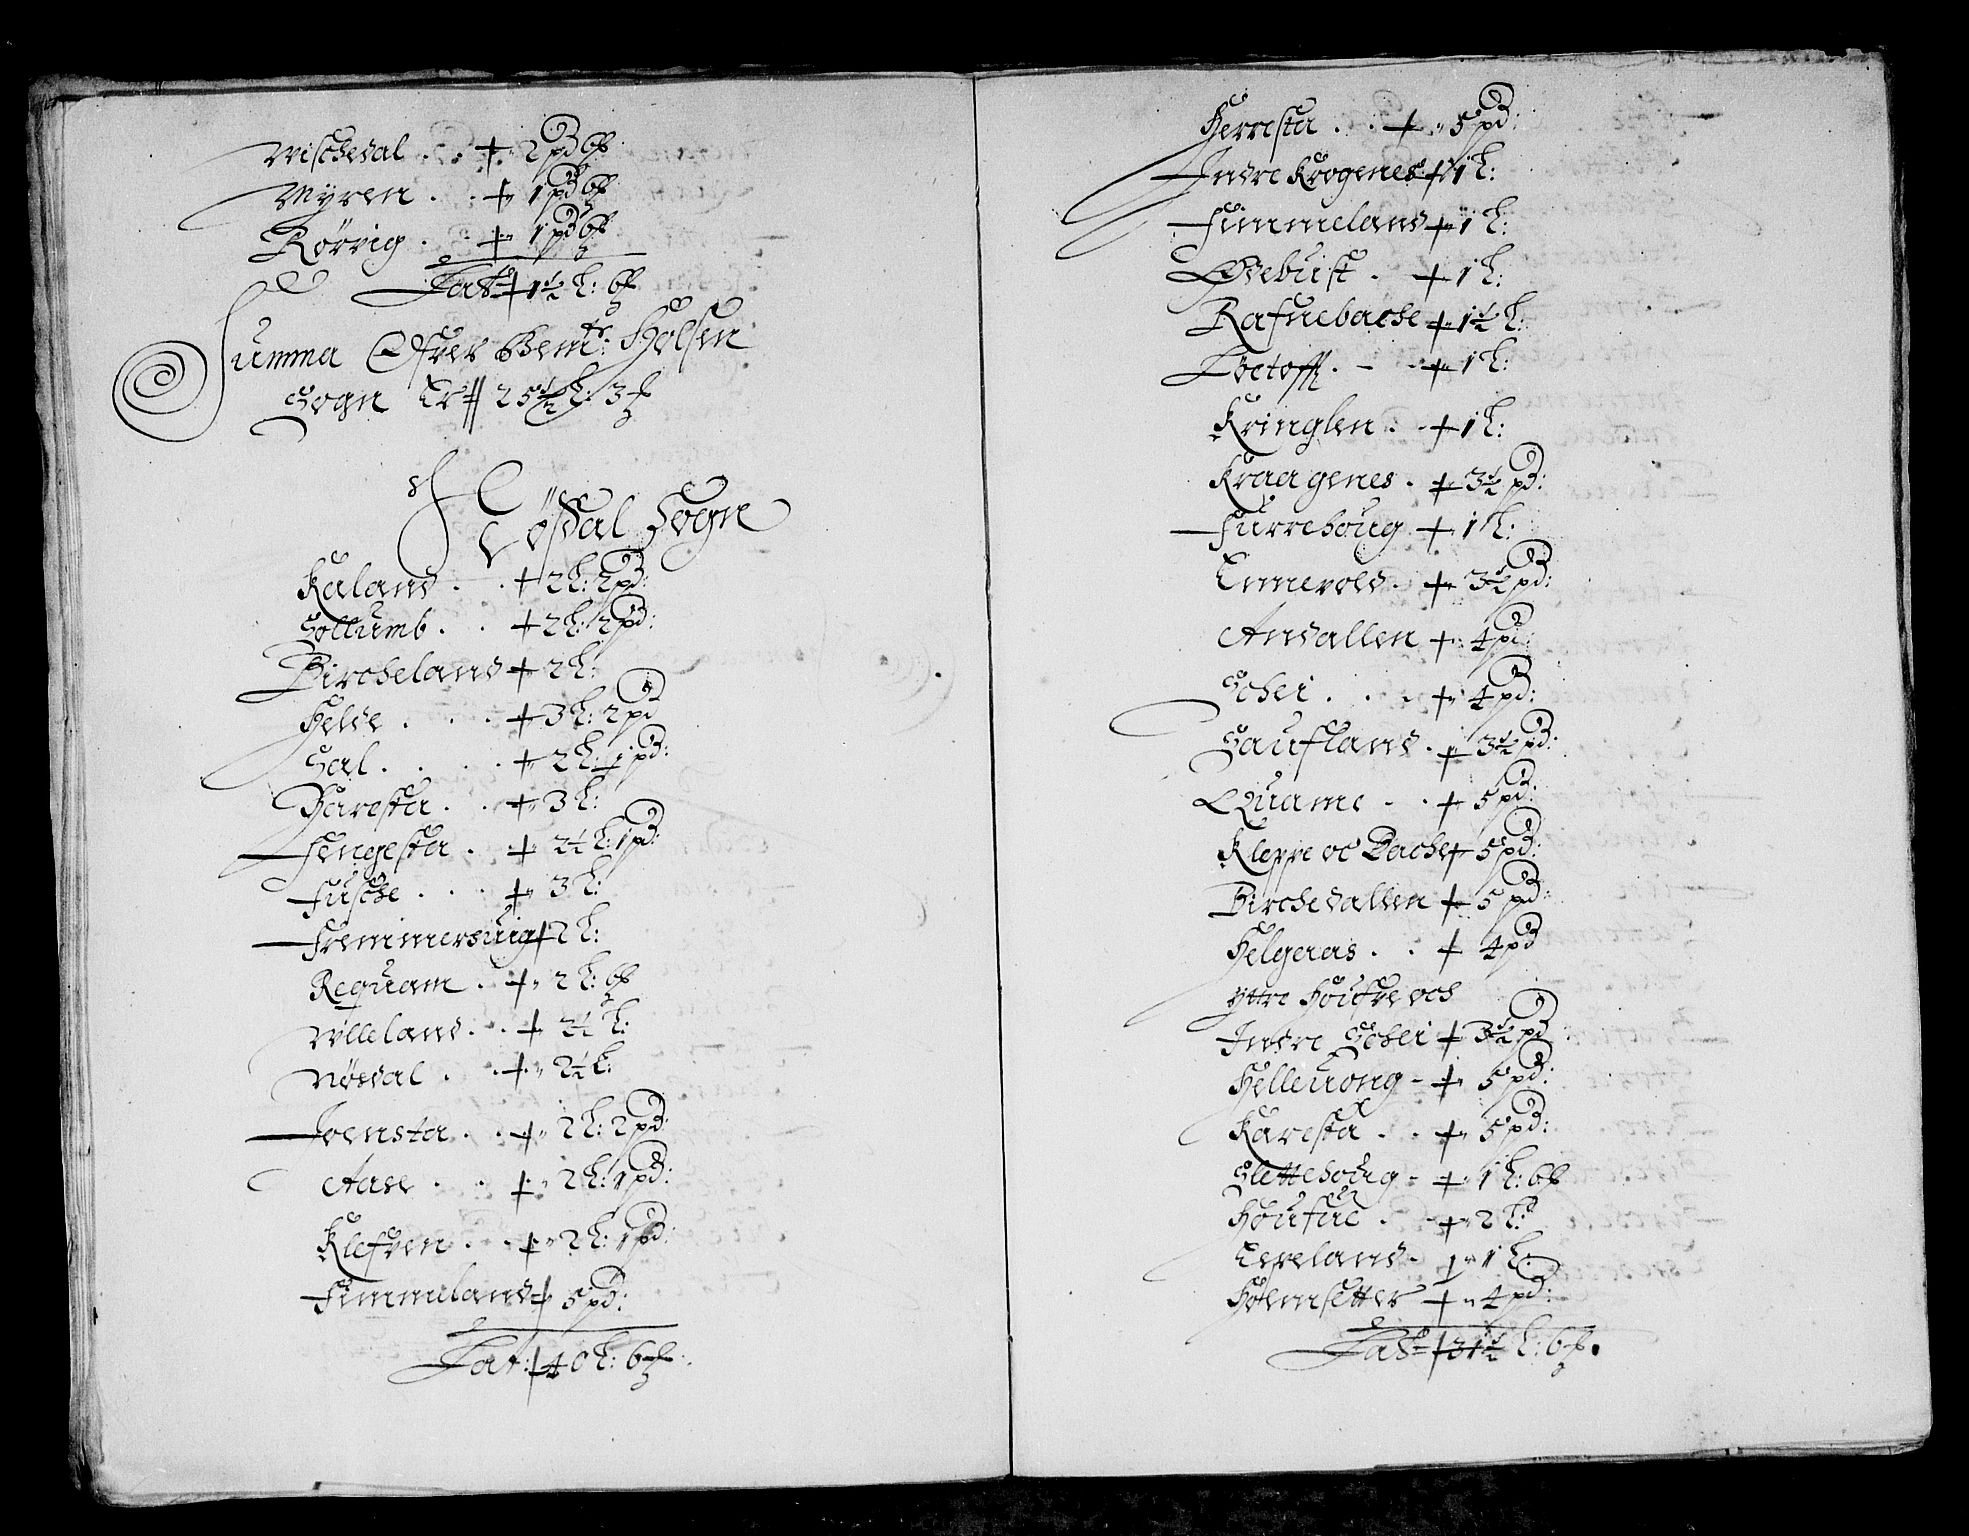 Wischedal . . + 2 pd 6 ß
Myren . . + 1 pd 6 ß
Rörvig . . + 1 pd 6 ß
Lat + 1½ L: 6 ß
Summa Ofver Bem: Holsen
Sogn Er 25½ L: 3 ß
Lösdal Sogn
Kaland . . + 2 L: 2 pd:
Sollumb . . + 2 L: 2 pd:
Bircheland + 2 L:
Helde . . . + 3 L: 2 pd
Sal . . . . + 2 L: 1 pd:
Haresta . . + 3 L:
Fengesta . + 2½ L: 1 pd:
Fusche . . . + 3 L:
Fremmersuig + 2 L:
Requam . + 2 L: 6 ß
Wlleland . . + 2½ L:
Nösdal . . + 2½ L:
Joensta . . + 2 L: 2 pd:
Aase . . + 2 L: 1 pd:
Klefven . . + 2 L: 1 pd:
Fimmeland + 5 pd:
Lat: 40 L: 6 ß
Herresta . . + 5 pd:
Indre Krogenes + 1 L:
Fimmeland + 1 L:
Ødebust . + 1 L:
Rafnebache + 1½ L:
Löetofft . - + 1 L:
Kringlen . + 1 L:
Kraagenes . + 3½ pd:
Furrehoug + 1 L:
Ennevold . + 3½ pd:
Andallen + 4 pd:
Schei . . . + 4 pd:
Saufland . + 3½ pd:
Quame - . + 5 pd:
Kleppe oc Bache + 5 pd:
Birchedallen + 5 pd:
Helgeras . . + 4 pd
Yttre Houfve och
Indre Schei + 3½ pd
Helleuong - + 5 pd:
Karesta . . + 5 pd:
Slettehoug - + 1 L: 6 ß
Houfue . + 2 L:
Eeveland . + 1 L:
Holemsetter + 4 pd:
Lat + 31½ L: 6 ß.